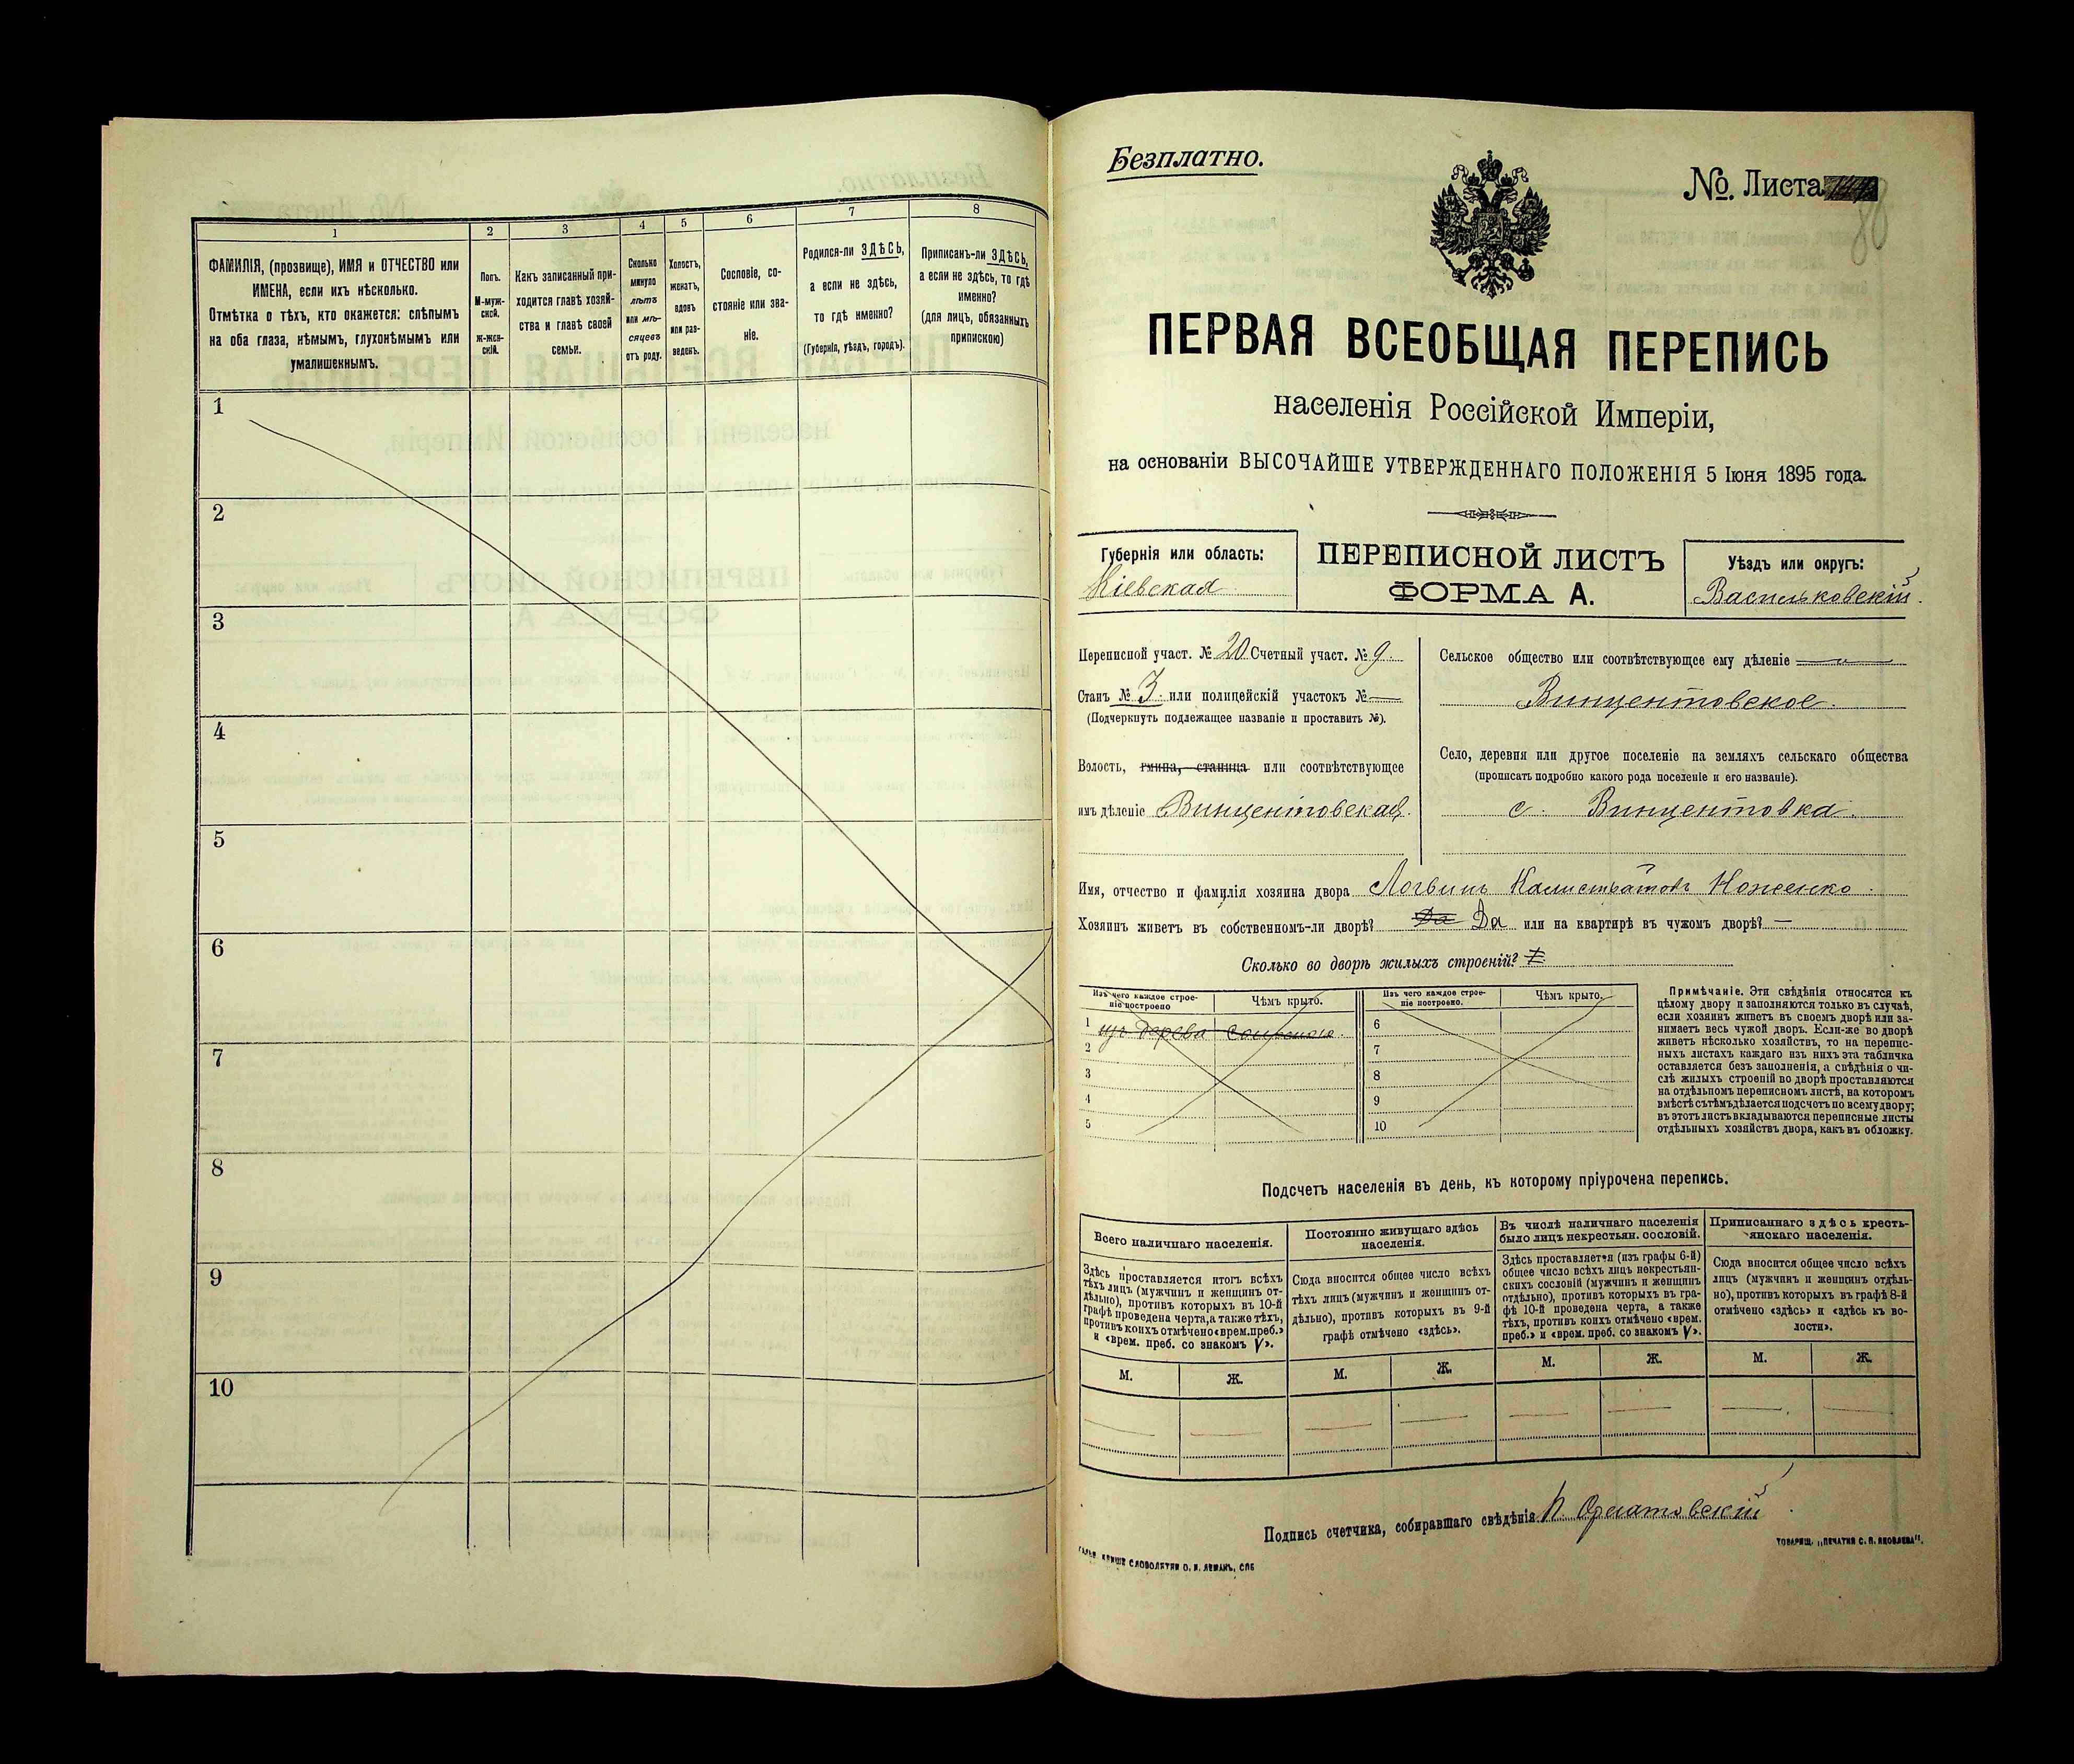 1
2
3
4
5
6
7
8
ФАМИЛІЯ, (прозвище), ИМЯ и ОТЧЕСТВО или
ИМЕНА, если ихъ нѣсколько.
Отмѣтка о тѣхъ, кто окажется: слѣпымъ
на оба глаза, нѣмымъ, глухонѣмымъ или
умалишеннымъ.
Полъ.
М-муж-
ской.
Ж-жен-
скій.
Какъ записанный при-
ходится главѣ хозяй-
ства и главѣ своей
семьи.
Сколько
минуло
лѣтъ
или мѣ-
сяцевъ
отъ роду.
Холостъ,
женатъ,
вдовъ
или раз-
веденъ.
Сословіе, со-
стояніе или зва-
ніе.
Родился-ли ЗДѢСЬ,
а если не здѣсь,
то гдѣ именно?
(Губернія, уѣздъ, городъ).
Приписанъ-ли ЗДѢСЬ,
а если не здѣсь, то гдѣ
именно?
(для лицъ, обязанныхъ
припискою)
1
2
3
4
5
6
7
8
9
10
Безплатно.
№. Листа
80
ПЕРВАЯ ВСЕОБЩАЯ ПЕРЕПИСЬ
населенія Россійской Имперіи,
на основаніи ВЫСОЧАЙШЕ УТВЕРЖДЕННАГО ПОЛОЖЕНІЯ 5 Іюня 1895 года.
Губернія или область:
Кіевская
ПЕРЕПИСНОЙ ЛИСТЪ
ФОРМА А.
Уѣздъ или округъ:
Васильковскій.
Переписной участ. № 20 Счетный участ. № 9.
Станъ № 3. или полицейскій участокъ № —
(Подчеркнуть подлежащее названіе и проставить №).
Волость, гмина, станица или соотвѣтствующее
имъ дѣленіе Винцентовская.
Сельское общество или соотвѣтствующее ему дѣленіе
Винцентовское.
Село, деревня или другое поселеніе на земляхъ сельскаго общества
(прописать подробно какого рода поселеніе и его названіе).
с. Винцентовка.
Имя, отчество и фамилія хозяина двора Логвинъ Калистратовъ Ноженко.
Хозяинъ живетъ въ собственномъ-ли дворѣ? Да Да или на квартирѣ въ чужомъ дворѣ? —
Сколько во дворѣ жилыхъ строеній? 1
Изъ чего каждое строе-
ніе построено
Чѣмъ крыто.
Изъ чего каждое строе-
ніе построено.
Чѣмъ крыто.
1 изъ дерева соломою.
2
3
4
5
6
7
8
9
10
Примѣчаніе. Эти свѣдѣнія относятся къ
цѣлому двору и заполняются только въ случаѣ,
если хозяинъ живетъ въ своемъ дворѣ или за-
нимаетъ весь чужой дворъ. Если-же во дворѣ
живетъ нѣсколько хозяйствъ, то на перепис-
ныхъ листахъ каждаго изъ нихъ эта табличка
оставляется безъ заполненія, а свѣдѣнія о чи-
слѣ жилыхъ строеній во дворѣ проставляются
на отдѣльномъ переписномъ листѣ, на которомъ
вмѣстѣ съ тѣмъ дѣлается подсчетъ по всему двору;
въ этотъ листъ вкладываются переписные листы
отдѣльныхъ хозяйствъ двора, какъ въ обложку.
Подсчетъ населенія въ день, къ которому пріурочена перепись.
Всего наличнаго населенія.
Здѣсь проставляется итогъ всѣхъ
тѣхъ лицъ (мужчинъ и женщинъ от-
дѣльно), противъ которыхъ въ 10-й
графѣ проведена черта, а также тѣхъ,
противъ коихъ отмѣчено «врем. преб.»
и «врем. преб. со знакомъ V».
Постоянно живущаго здѣсь
населенія.
Сюда вносится общее число всѣхъ
тѣхъ лицъ (мужчинъ и женщинъ от-
дѣльно), противъ которыхъ въ 9-й
графѣ отмѣчено «здѣсь».
Въ числѣ наличнаго населенія
было лицъ некрестьян. сословій.
Здѣсь проставляется (изъ графы 6-й)
общее число всѣхъ лицъ некрестьян-
скихъ сословій (мужчинъ и женщинъ
отдѣльно), противъ которыхъ въ гра-
фѣ 10-й проведена черта, а также
тѣхъ, противъ коихъ отмѣчено «врем.
преб.» и «врем. преб. со знакомъ V».
Приписаннаго здѣсь кресть-
янскаго населенія.
Сюда вносится общее число всѣхъ
лицъ (мужчинъ и женщинъ отдѣль-
но), противъ которыхъ въ графѣ 8-й
отмѣчено «здѣсь» и «здѣсь къ во-
лости».
М.
Ж.
М.
Ж.
М.
Ж.
М.
Ж.
Подпись счетчика, собиравшаго свѣдѣнія
СЛОВОЛИТНИ О. И. ЛЕМАНЪ, СПБ
ТОВАРИЩ. „ПЕЧАТНЯ С. П. ЯКОВЛЕВА".